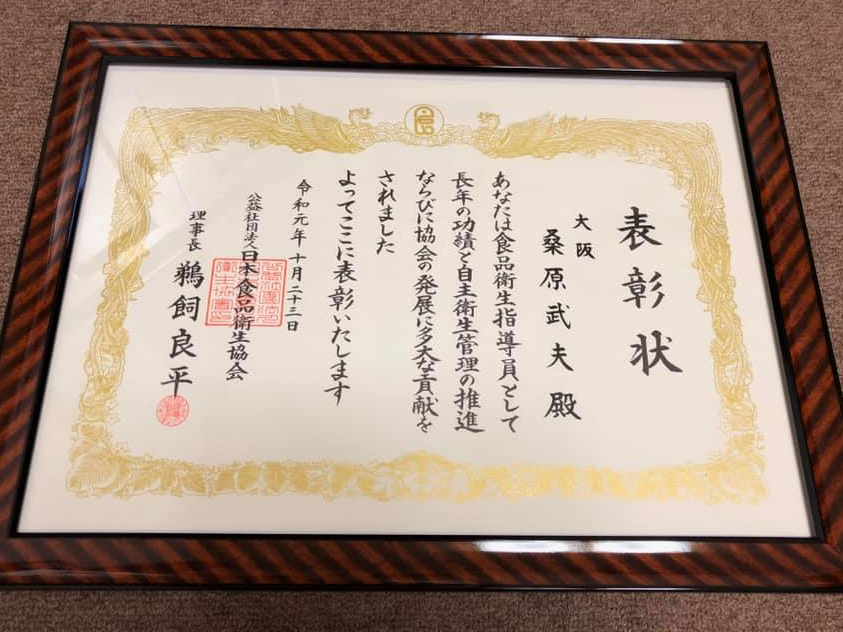 表彰状
大阪
桑原武夫殿
あなたは食品衛生指導員として
長年の功績と自主衛生管理の推進
ならびに協会の発展に多大な貢献を
されました
よってここに表彰いたします
令和元年十月二十三日
公益社団法人日本食品衛生協会
理事長 鵜飼良平